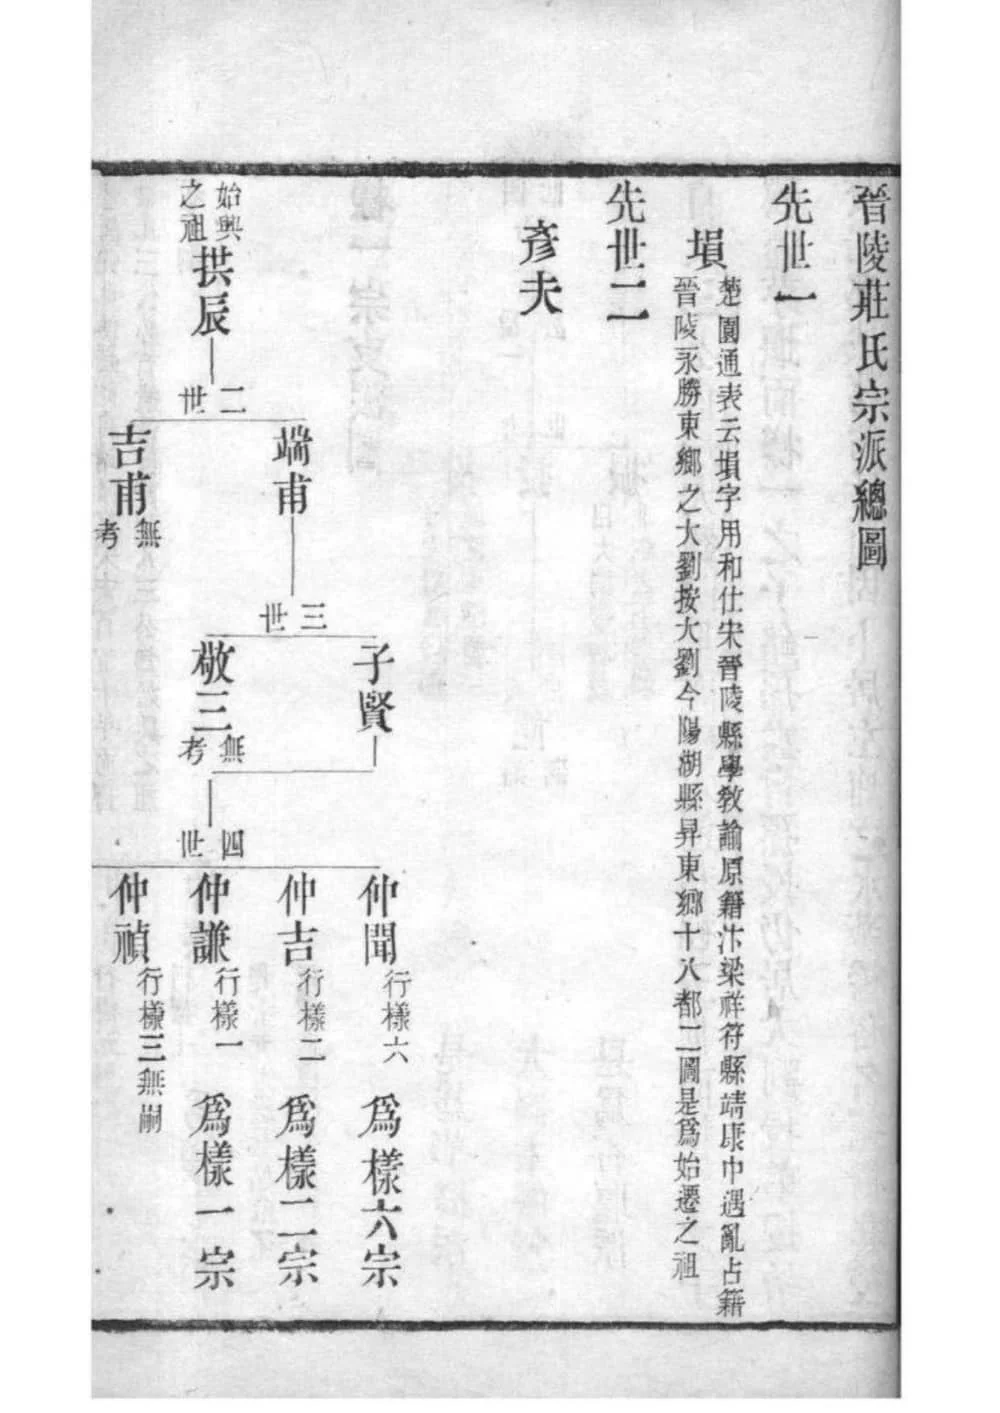 晉陵莊氏宗派總圖
先世一
塤
楚園通表云塤字用和仕宋晉陵縣學教諭原籍汴梁祥符縣靖康中遇亂占籍
晉陵永勝東鄉之大劉按大劉今陽湖縣昇東鄉十八都二圖是爲始遷之祖
先世二
彥夫
始興
之祖
拱辰
二世
端甫
吉甫
無考
三世
子賢
敬三
無考
四世
仲聞
行樣六
爲樣六宗
仲吉
行樣二
爲樣二宗
仲謙
行樣一
爲樣一宗
仲禎
行樣三無嗣